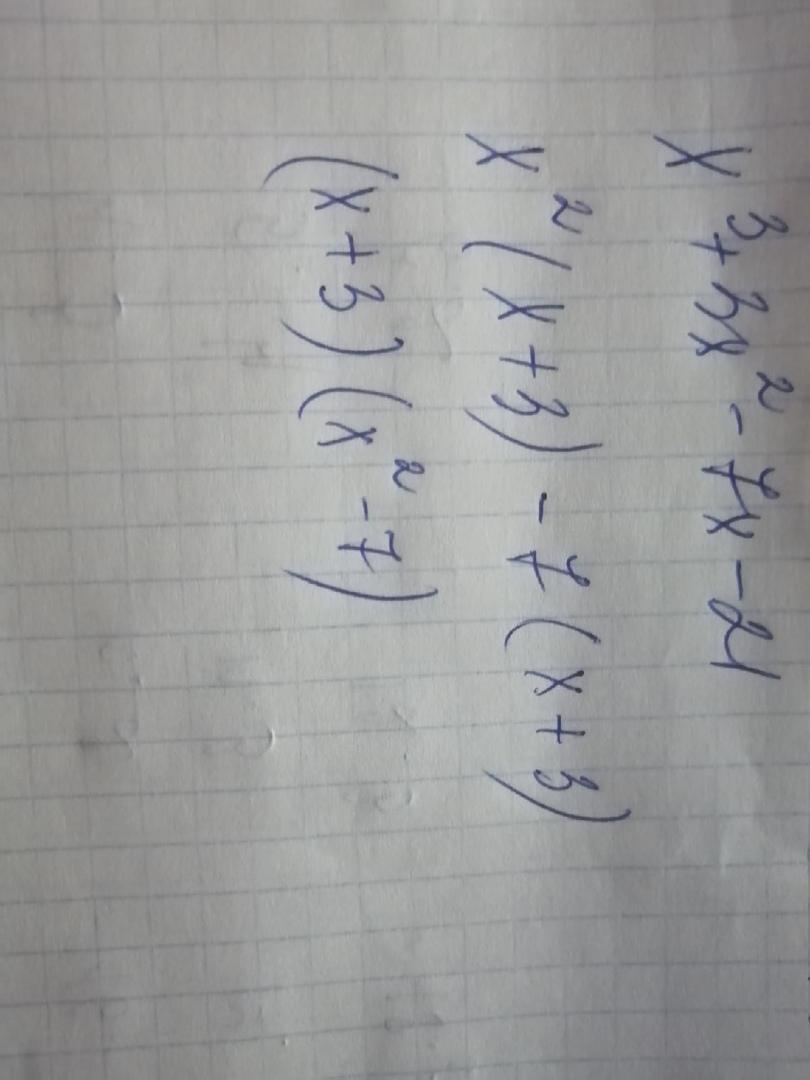 x³ + 3x² - 7x - 21
x² (x + 3) - 7 (x + 3)
(x + 3) (x² - 7)